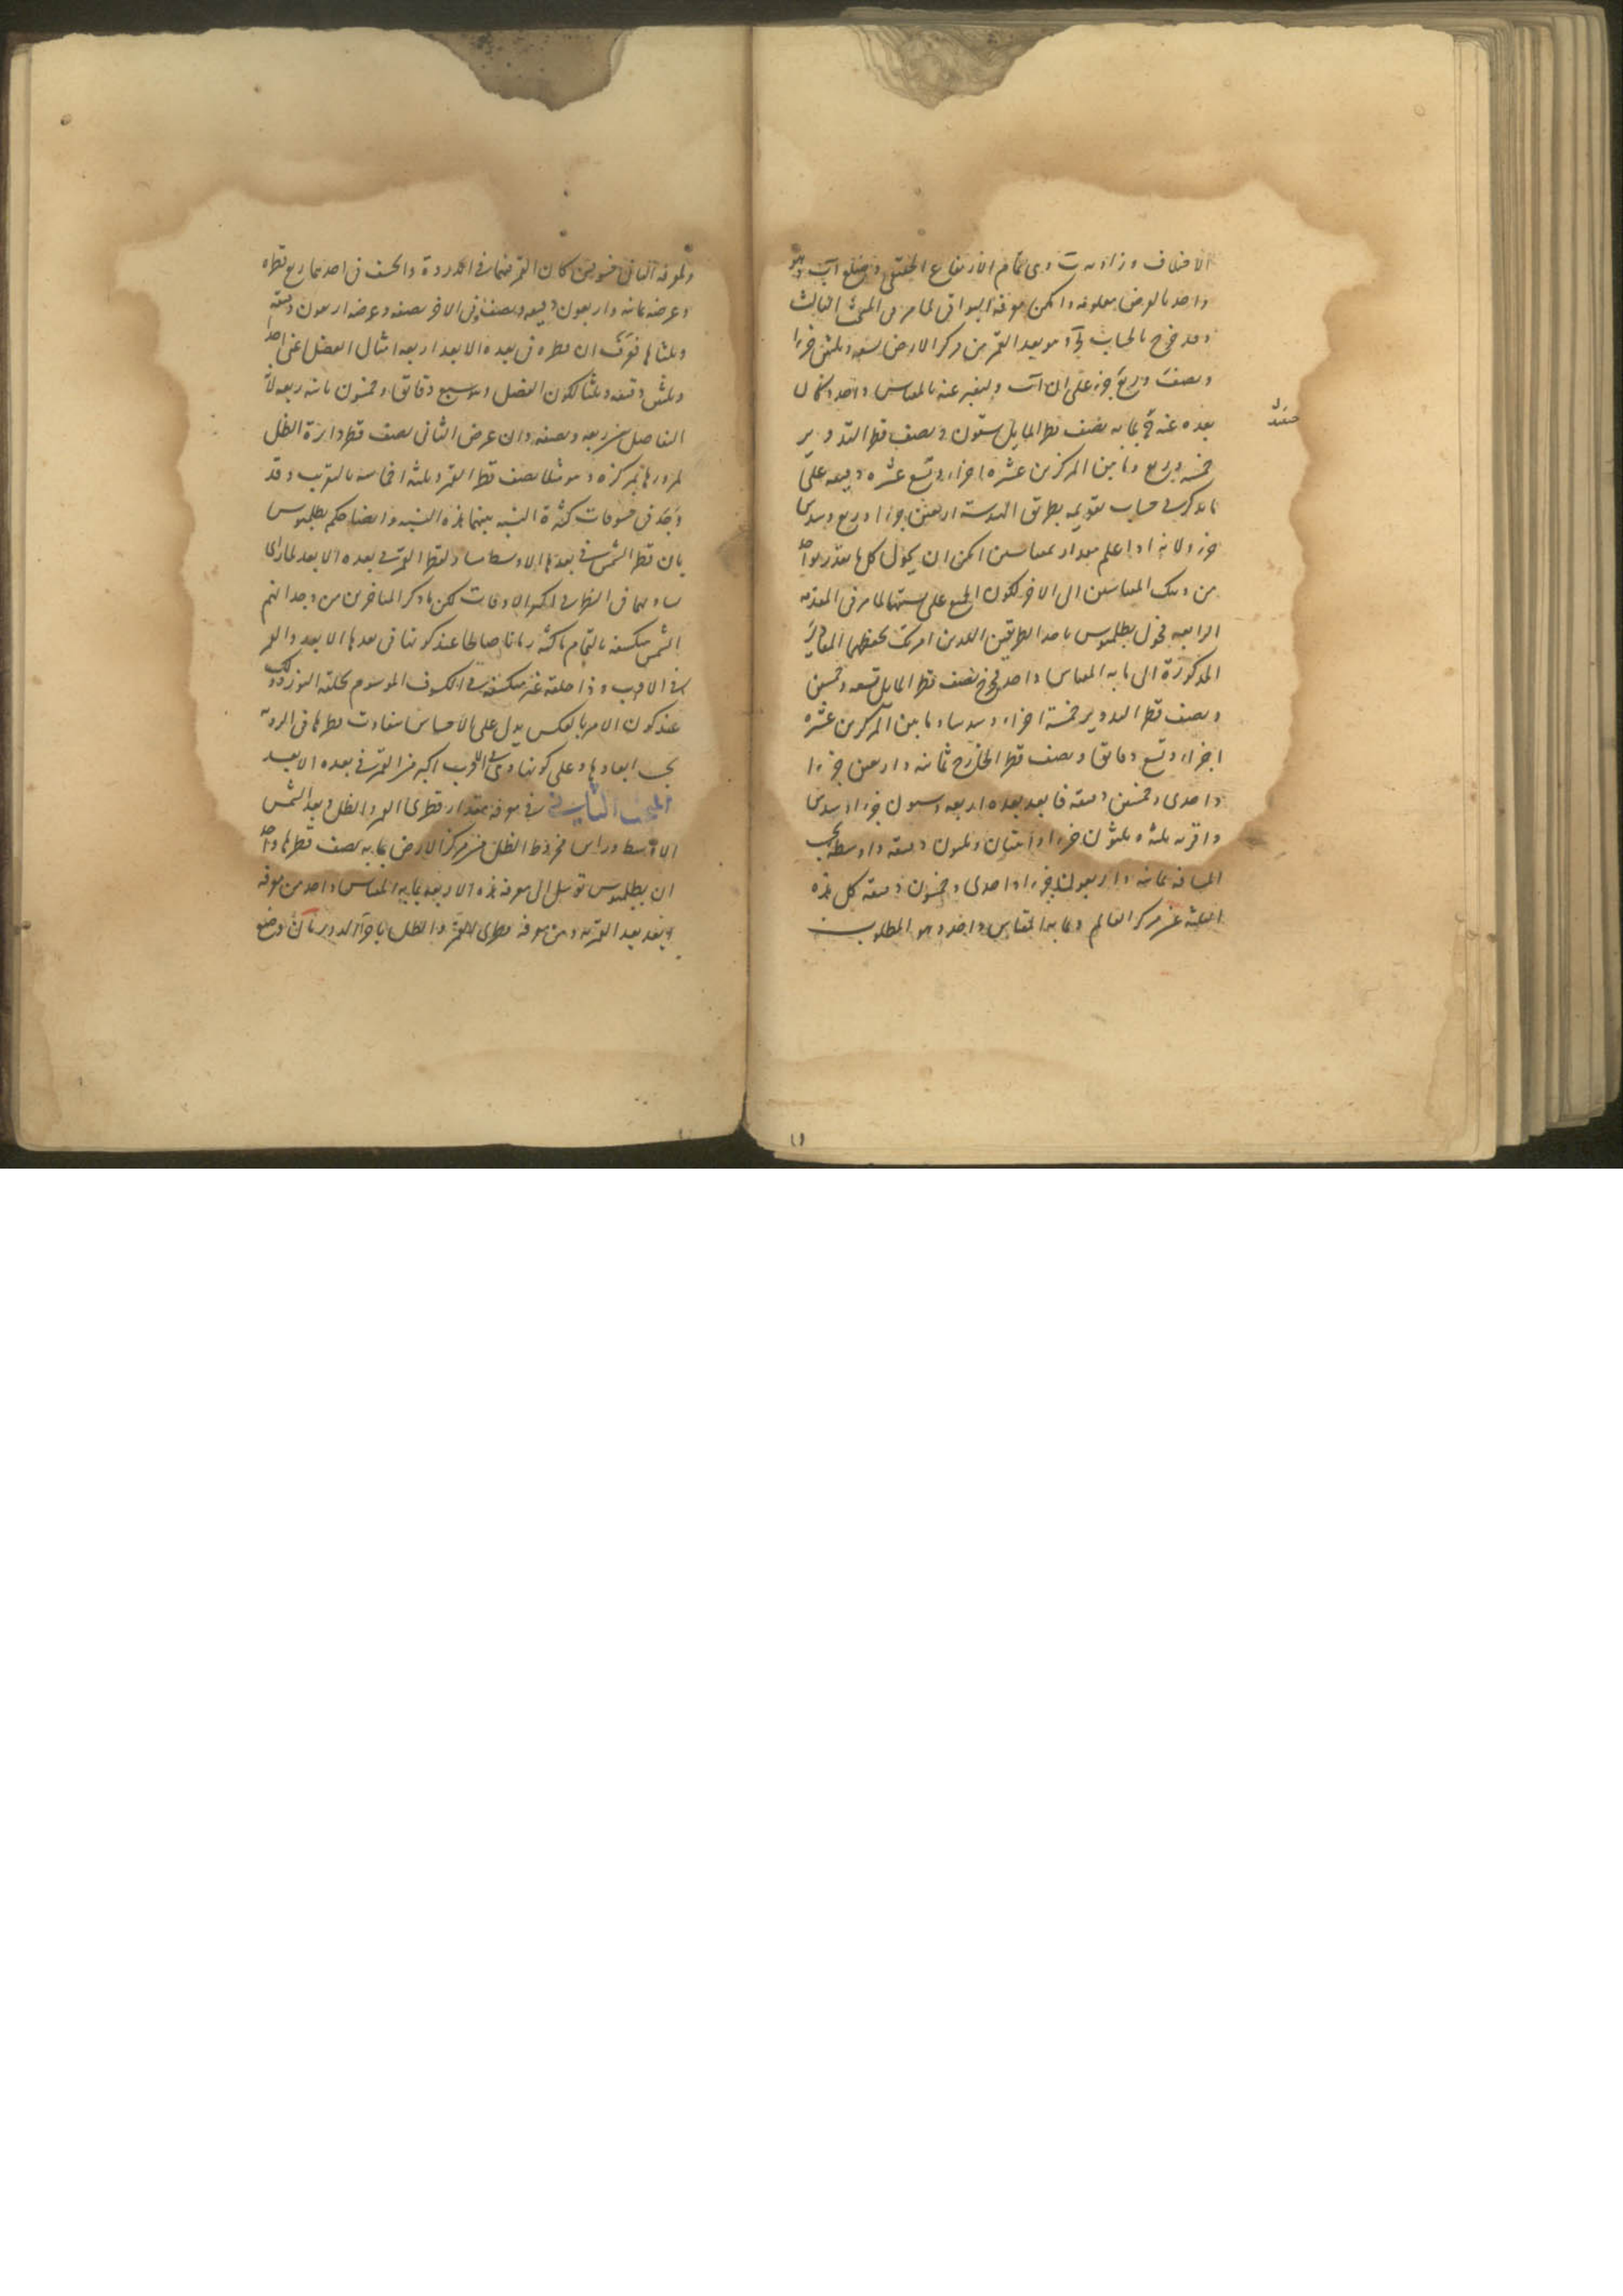 الاختلاف وزاوية ب وهى تمام الارتفاع الحقيقى وضلع اب وهو
واحد بالفرض معلومة وامكن معرفة البواقى لما مر فى المبحث الثالث
وقد خرج بالحساب وهو بعد القمر من مركز الارض تسعة وثلثين جزءا
ونصف وربع جزء على ان اب وليعبر عنه بالمقياس واحد وكان
بعده عنه بما به نصف قطر المايل ستون ونصف قطر التدوير
خمسة وربع وما بين المركزين عشرة اجزاء وتسع عشرة دقيقة على
ما ذكر فى حساب تقويمه بطريق الهندسة اربعين جزءا وربع وسدس
جزء ولانه اذا علم مقدار بمقياسين امكن ان يحول كل ما تقدر بواحد
من ذينك المقياسين الى الاخر لكون الجميع على نسبتهما لما مر فى المقدمة
الرابعة فحول بطلميوس باحد الطريقين اللذين امرتك بحفظهما المقادير
المذكورة الى ما به المقياس واحد فخرج نصف قطر المايل تسعة وخمسين
ونصف قطر التدوير خمسة اجزاء وسدسا وما بين المركزين عشرة
اجزاء وتسع دقائق ونصف قطر الخارج ثمانية واربعين جزءا
واحدى وخمسين دقيقة فابعد بعده اربعة وستون جزءا وسدس
واقربه ثلثة وثلثون جزءا واثنتان وثلثون دقيقة واوسطه بحسب
المسافة ثمانية واربعون جزءا واحدى وخمسون دقيقة كل هذه
الثلثة عن مركز العالم وبما به المقياس واحد وهو المطلوب
ولمعرفة الثانى خسوفين كان القمر فيهما فى الذروة وانخسف فى احدهما ربع قطره
وعرضه ثمانية واربعون دقيقة ونصف وفى الاخر نصفه وعرضه اربعون دقيقة
وثلثاها فعرف ان قطره فى بعده الابعد اربعة امثال الفضل اعنى احدى
وثلثين دقيقة وثلثا لكون الفضل وهو سبع دقائق وخمسون ثانية ربعه لانه
التفاضل بين ربعه ونصفه وان عرض الثانى نصف قطر دائرة الظل
لمرورها بمركزه وهو مثلا نصف قطر القمر وثلثة اخماسه بالتقريب وقد
وجد فى خسوفات كثيرة النسبة بينهما هذه النسبة وايضا حكم بطلميوس
بان قطر الشمس فى بعدها الاوسط مساو لقطر القمر فى بعده الابعد لما راى
تساويهما فى النظر فى اكثر الاوقات لكن ما ذكر المتاخرون من وجدانهم
الشمس منكسفة بالتمام ماكثة زمانا صالحا عند كونها فى بعدها الابعد والقمر
فى الاقرب وذا حلقة غير منكسفة فى الكسوف الموسوم بحلقة النور وذلك
عند كون الامر بالعكس يدل على الاحساس بتفاوت قطرها فى الرؤية
بحسب ابعادها وعلى كونها وهى فى الاقرب اكبر من القمر فى بعده الابعد
المبحث الثانى فى معرفة مقدار قطرى القمر والظل وبعد الشمس
الاوسط وراس مخروط الظل من مركز الارض بما به نصف قطرها واحد
ان بطلميوس توسل الى معرفة هذه الاربعة بما به المقياس واحد من معرفة
وبعد بعد القمر به ومن معرفة قطرى القمر والظل باجزاء الدور بان وضع